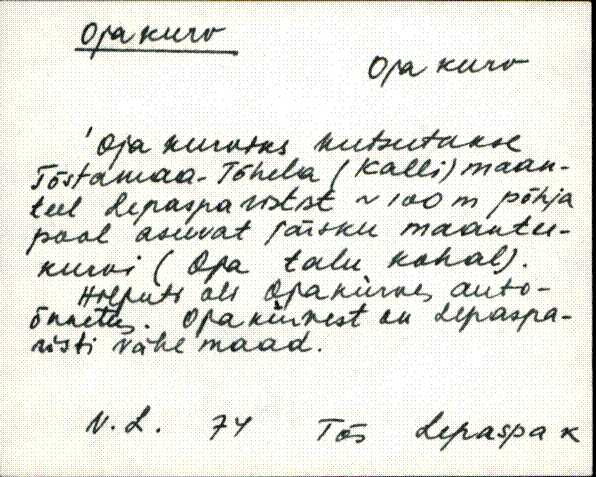 Oja kurv
Oja kurv
'Oja kurviks kutsutakse
Tõstamaa-Tõhela (Kalli) maan-
teel Lepaspa ristist ~ 100 m põhja
pool asuvat järsku maantee-
kurvi (Oja talu kohal).
oli Oja kürves auto-
õnnetus. Oja kürvest on Lepaspa-
risti vähe maad.
N. L. 74 Tõs Lepaspa k